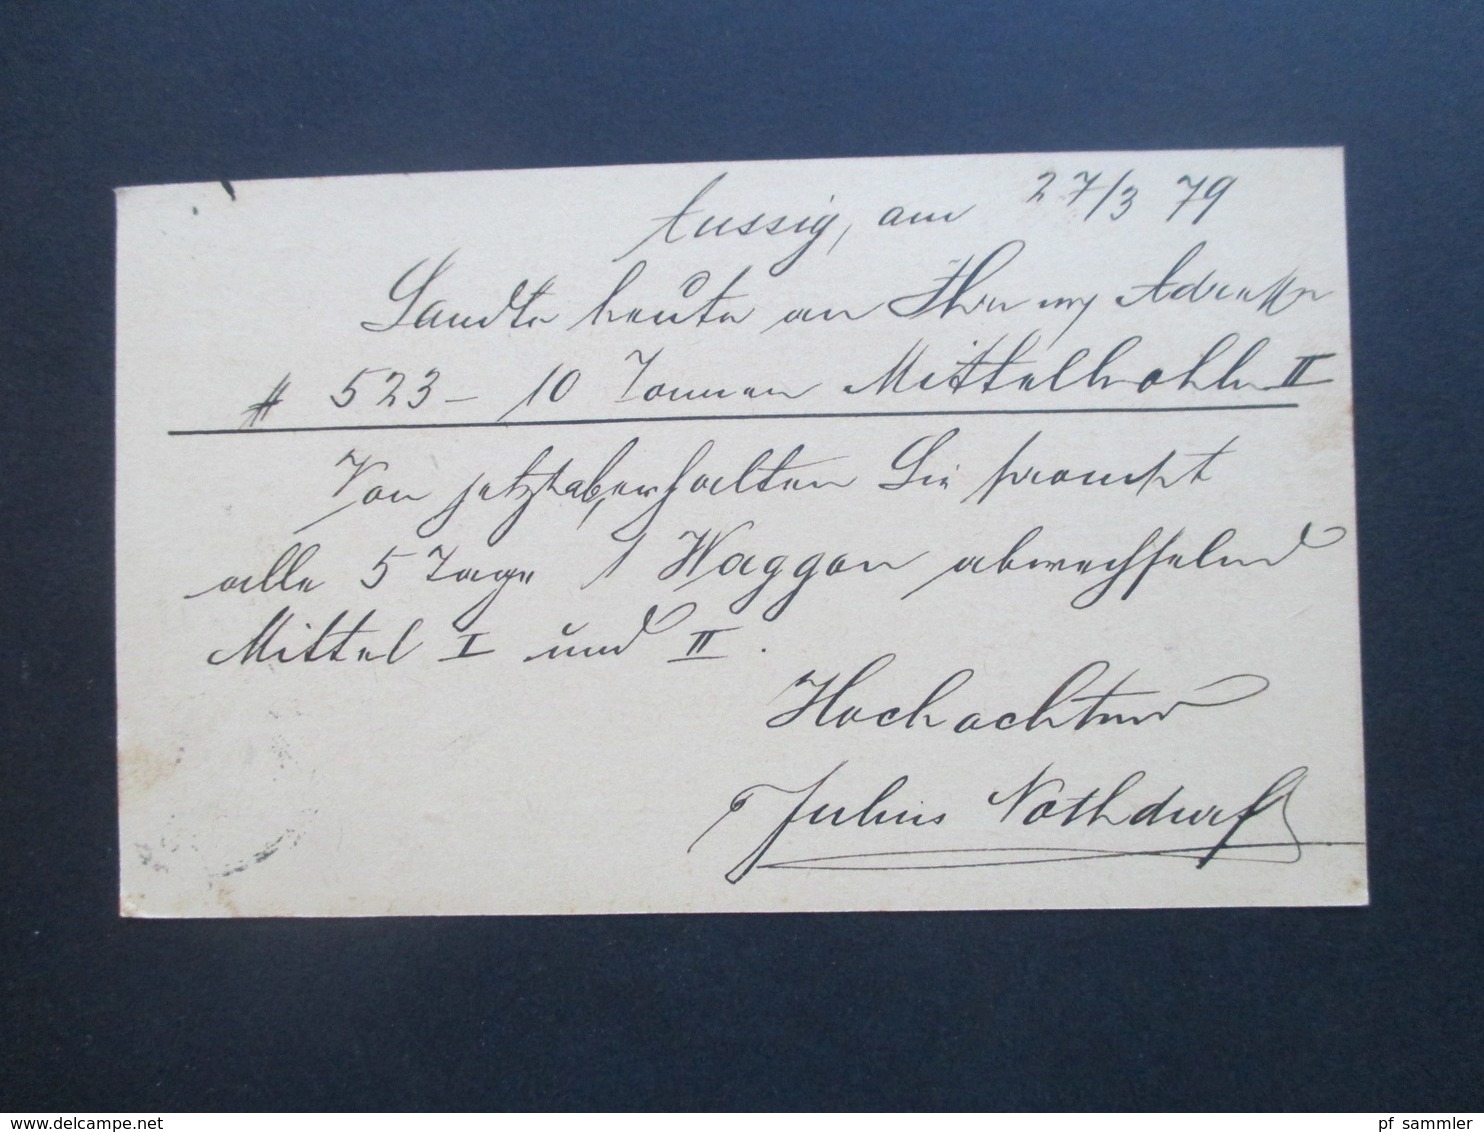 Aussig, am 27/3 79
Sandte heute an Ihre Adresse
# 523 - 10 Tonnen Mittelkohle II
Von jetzt ab, erhalten Sie prompt
alle 5 Tage 1 Waggon abwechselnd
Mittel I und II.
Hochachtend
Julius Nothdurft
www.delcampe.net
pf_sammler